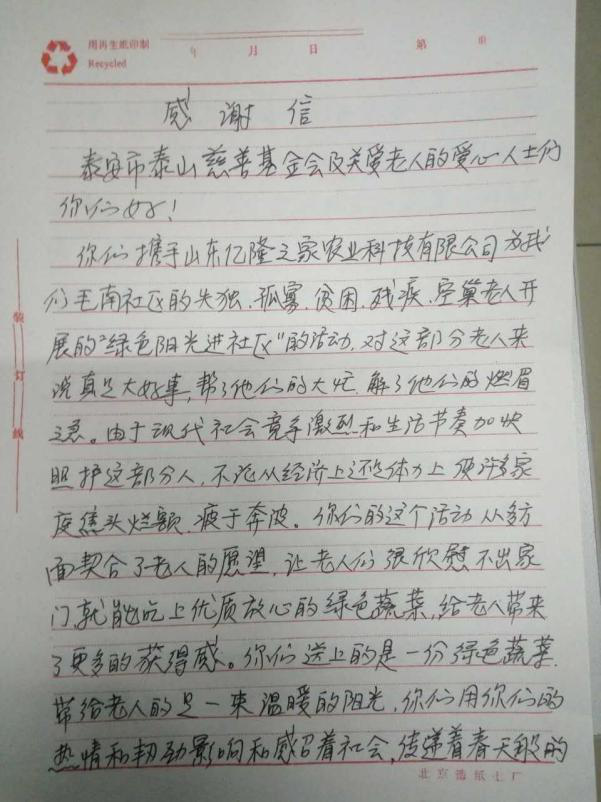 用再生纸印制
Recycled
年 月 日 第 页
感谢信
泰安市泰山慈善基金会及关爱老人的爱心人士们
你们好!
你们携手山东亿隆之家农业科技有限公司为我
们毛南社区的失独、孤寡、贫困、残疾、空巢老人开
展的"绿色阳光进社区"的活动,对这部分老人来
说真是大好事,帮了他们的大忙,解了他们的燃眉
之急。由于现代社会竞争激烈和生活节奏加快
照护这部分人,不论从经济上还是体力上使许多家
庭焦头烂额,疲于奔波。你们的这个活动从多方
面契合了老人的愿望,让老人们很欣慰不出家
门,就能吃上优质放心的绿色蔬菜,给老人带来
了更多的获得感。你们送上的是一份绿色蔬菜,
带给老人的是一束温暖的阳光,你们用你们的
热情和韧劲影响和感召着社会,传递着春天般的
装 订 线
北京造纸七厂